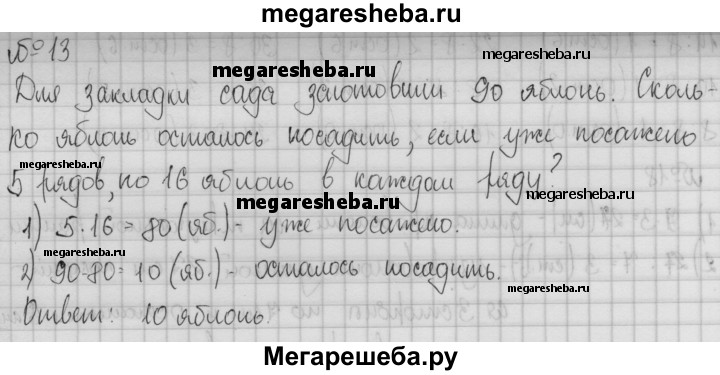 megaresheba.ru
№13
megaresheba.ru
megaresheba.ru
Для закладки сада заготовили 90 яблонь. Сколь-
ко яблонь осталось посадить, если уже посажено
megaresheba.ru
megaresheba.ru
5 рядов, по 16 яблонь в каждом ряду?
1) 5·16=80 (яб.) - уже посажено.
megaresheba.ru
megaresheba.ru
2) 90-80=10 (яб.) - осталось посадить.
megaresheba.ru
Ответ: 10 яблонь.
Мегарешеба.ру